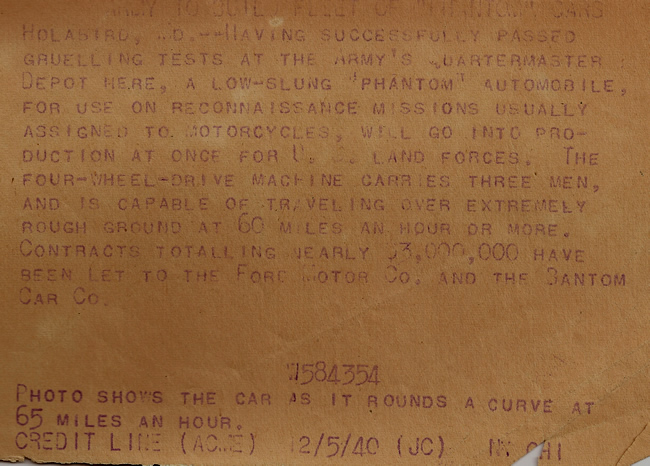 ARMY TO BUILD FLEET OF "PHANTOM" CARS
HOLABIRD, MD.--HAVING SUCCESSFULLY PASSED
GRUELLING TESTS AT THE ARMY'S QUARTERMASTER
DEPOT HERE, A LOW-SLUNG "PHANTOM" AUTOMOBILE,
FOR USE ON RECONNAISSANCE MISSIONS USUALLY
ASSIGNED TO MOTORCYCLES, WILL GO INTO PRO-
DUCTION AT ONCE FOR U. S. LAND FORCES. THE
FOUR-WHEEL-DRIVE MACHINE CARRIES THREE MEN,
AND IS CAPABLE OF TRAVELING OVER EXTREMELY
ROUGH GROUND AT 60 MILES AN HOUR OR MORE.
CONTRACTS TOTALLING NEARLY $3,000,000 HAVE
BEEN LET TO THE FORD MOTOR CO. AND THE BANTOM
CAR CO.
W584354
PHOTO SHOWS THE CAR AS IT ROUNDS A CURVE AT
65 MILES AN HOUR.
CREDIT LINE (ACME) 12/5/40 (JC) NY CHI